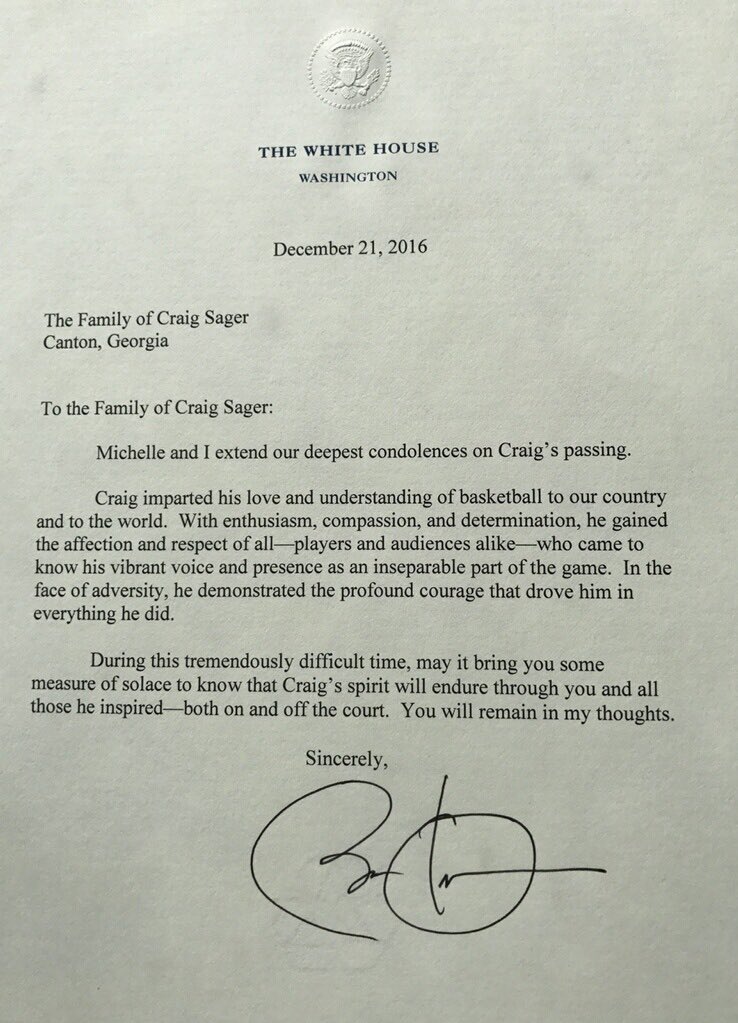 THE WHITE HOUSE
WASHINGTON
December 21, 2016
The Family of Craig Sager
Canton, Georgia
To the Family of Craig Sager:
Michelle and I extend our deepest condolences on Craig's passing.
Craig imparted his love and understanding of basketball to our country
and to the world. With enthusiasm, compassion, and determination, he gained
the affection and respect of all—players and audiences alike—who came to
know his vibrant voice and presence as an inseparable part of the game. In the
face of adversity, he demonstrated the profound courage that drove him in
everything he did.
During this tremendously difficult time, may it bring you some
measure of solace to know that Craig's spirit will endure through you and all
those he inspired—both on and off the court. You will remain in my thoughts.
Sincerely,